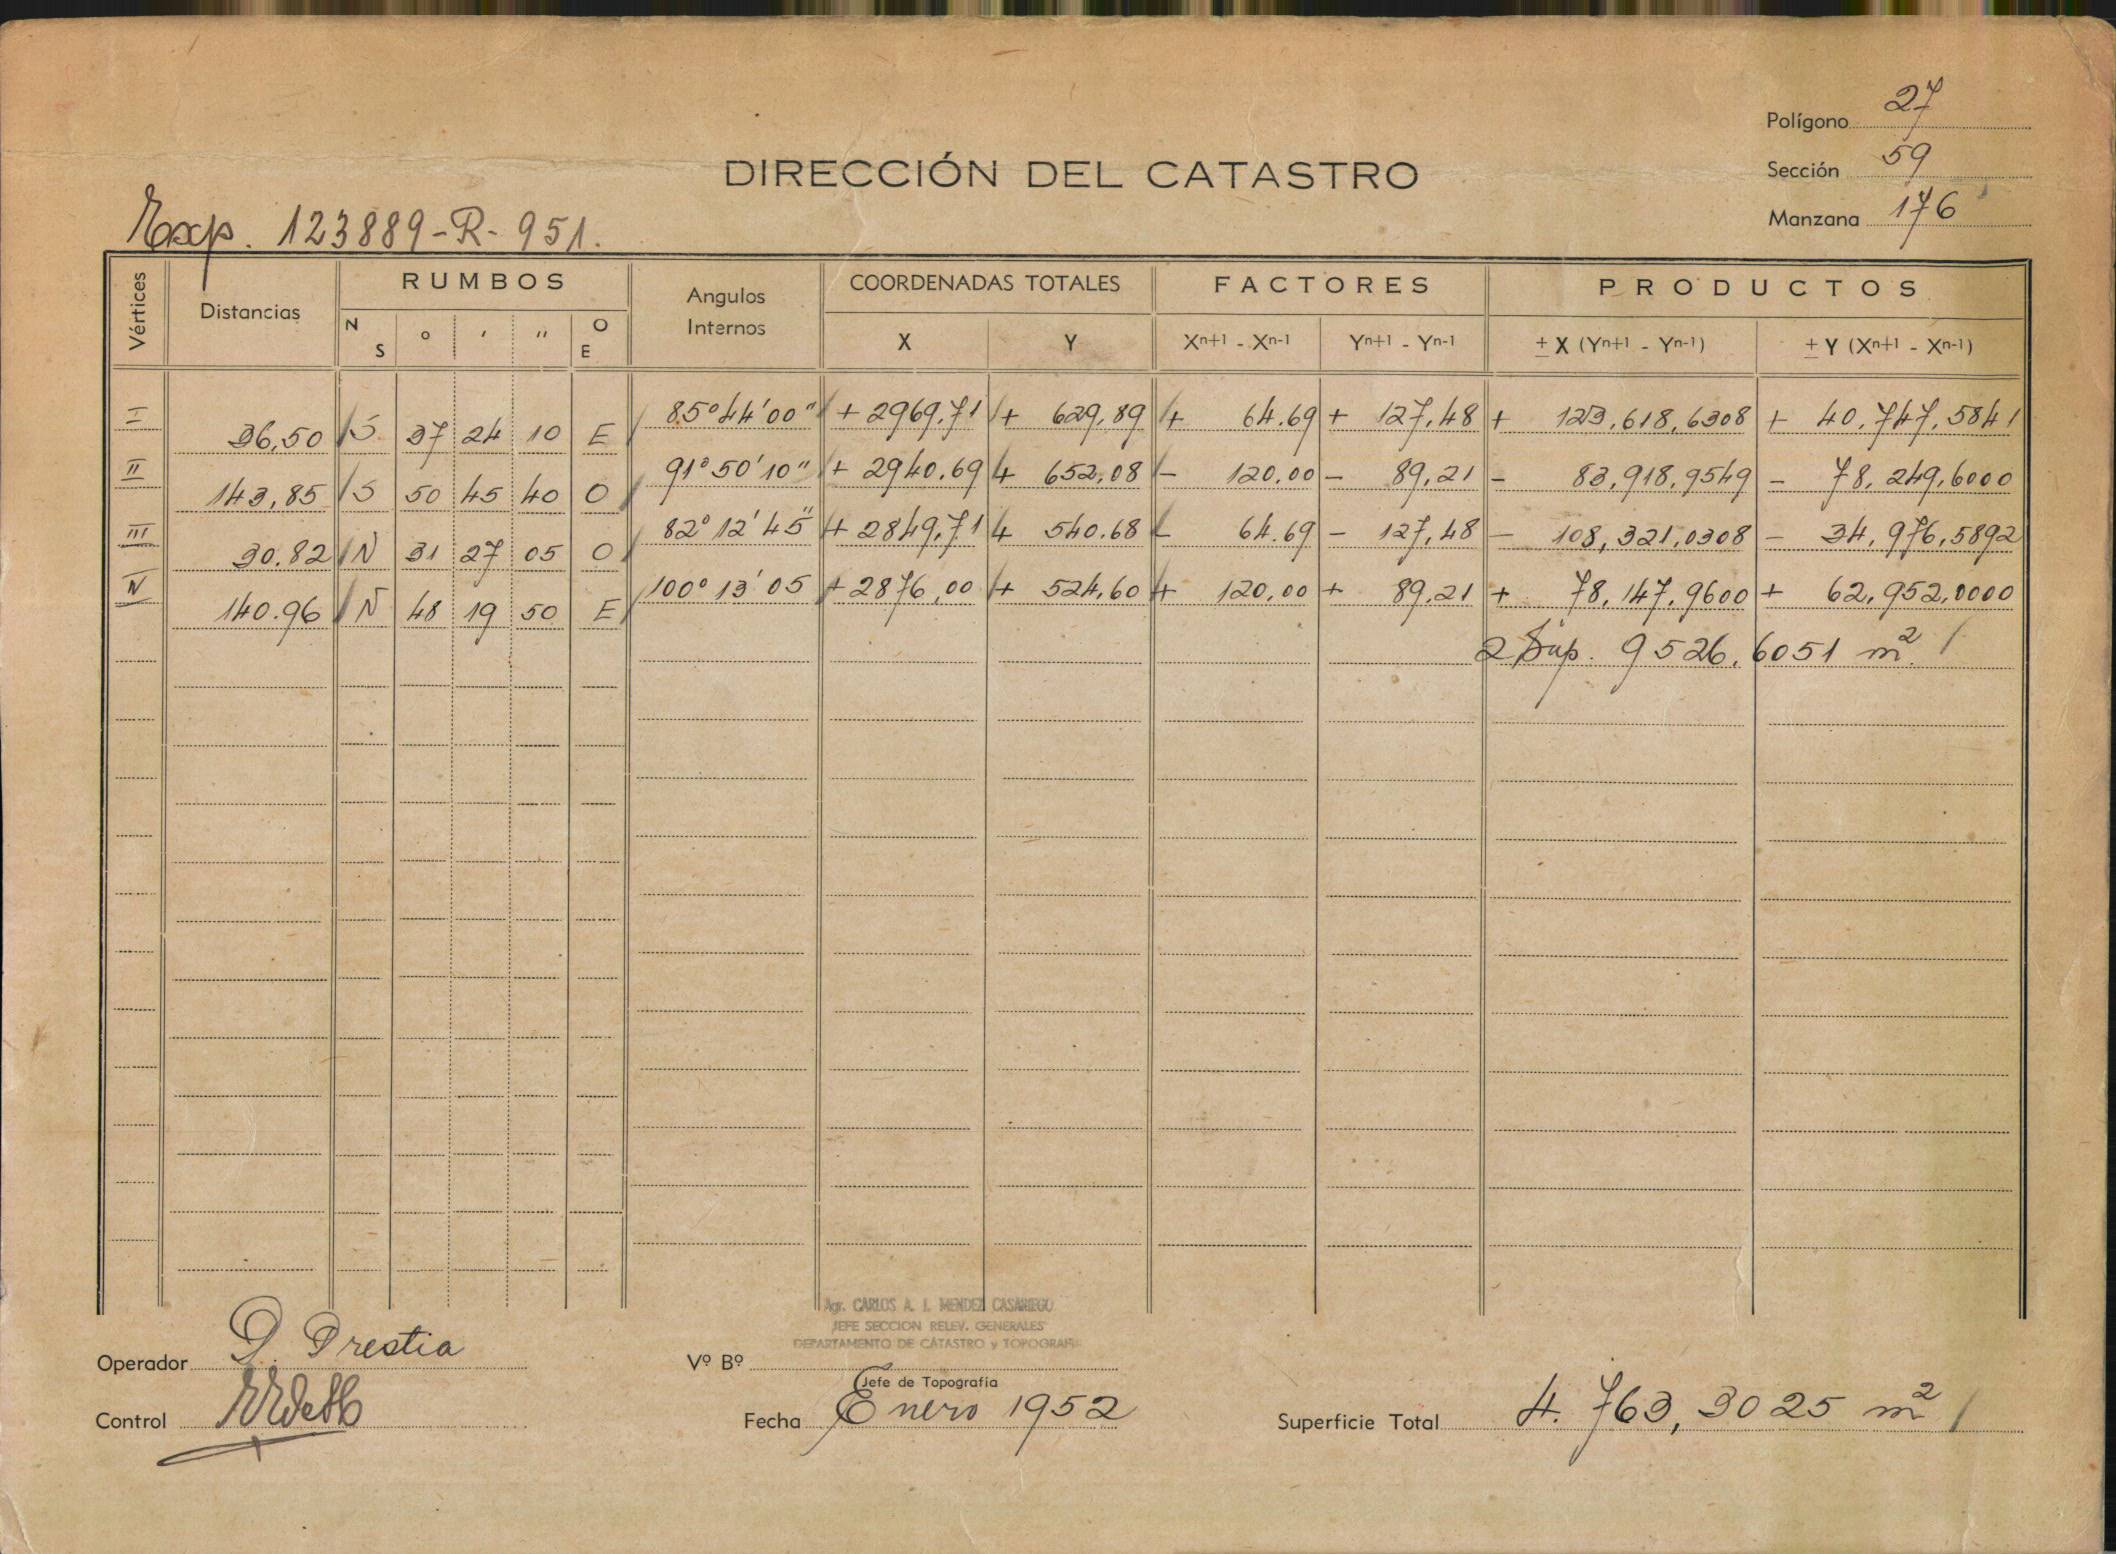 Polígono 27
DIRECCIÓN DEL CATASTRO
Sección 59
Manzana 176
Exp. 123889-R-951.
Vértices Distancias RUMBOS Angulos Internos COORDENADAS TOTALES FACTORES PRODUCTOS
N S ° ' " O E X Y Xn+1 - Xn-1 Yn+1 - Yn-1 ± X (Yn+1 - Yn-1) ± Y (Xn+1 - Xn-1)
I 36,50 S 37 24 10 E 85°44'00" + 2969,71 + 629,89 + 64.69 + 127,48 + 123,618,6308 + 40,747,5841
II 143,85 S 50 45 40 O 91°50'10" + 2940.69 + 652,08 - 120,00 - 89,21 - 83,918,9549 - 78,249,6000
III 30.82 N 31 27 05 O 82°12'45" + 2849,71 + 540.68 - 64.69 - 127,48 - 108,321,0308 - 34,976,5892
IV 140.96 N 48 19 50 E 100°13'05 + 2876,00 + 524,60 + 120,00 + 89,21 + 78,147,9600 + 62,952,0000
2 Sup. 9526,6051 m²
Agr. CARLOS A. I. MENDEZ CASARIEGO
JEFE SECCION RELEV. GENERALES
DEPARTAMENTO DE CATASTRO y TOPOGRAFIA
Operador D. Prestia
Vº Bº
Jefe de Topografía
Control
Fecha Enero 1952
Superficie Total 4.763,3025 m²